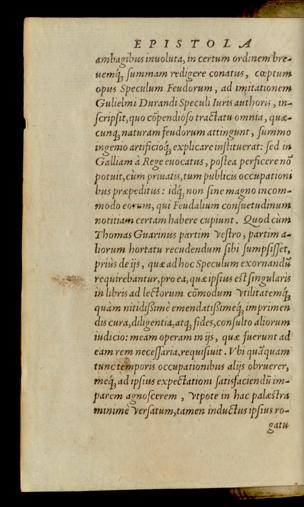 EPISTOLA
ambagibus inuoluta, in certum ordinem bre-
uemq́, summam redigere conatus, cœptum
opus Speculum Feudorum, ad imitationem
Gulielmi Durandi Speculi Iuris authoris, in-
scripsit, quo cõpendioso tractatu omnia, quæ-
cunq, naturam feudorum attingunt, summo
ingenio artificioq́, explicare instituerat: sed in
Galliam à Rege euocatus, postea perficere nõ
potuit, cùm priuatis, tum publicis occupationi
bus præpeditus: idq́, non sine magno incom-
modo eorum, qui Feudalium consuetudinum
notitiam certam habere cupiunt. Quod cùm
Thomas Guarinus partim vestro, partim a-
liorum hortatu recudendum sibi sumpsisset,
priùs de ijs, quæ ad hoc Speculum exornandũ
requirebantur, pro ea, quæ ipsius est singularis
in libris ad lectorum cõmodum vtilitatemq́,
quàm nitidißimè emendatißimeq́, imprimen
dis cura, diligentia, atq, fides, consulto aliorum
iudicio: meam operam in ijs, quæ fuerunt ad
eam rem necessaria, requisiuit. Vbi quãquam
tunc temporis occupationibus alijs obruerer,
meq́, ad ipsius expectationi satisfaciendũ im-
parem agnoscerem, vtpote in hac palæstra
minimè versatum, tamen inductus ipsius ro-
gatu